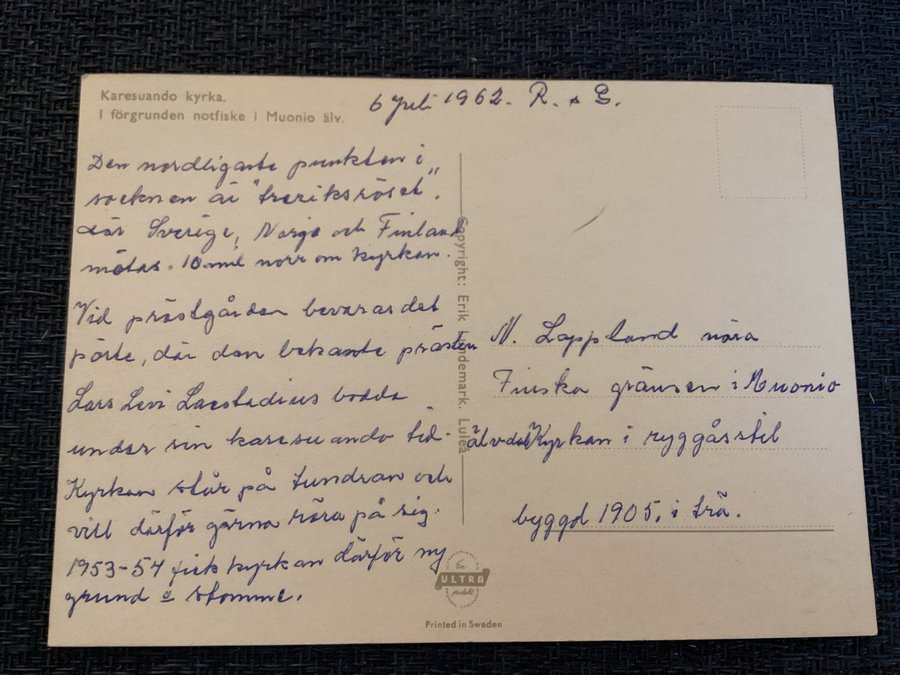 Karesuando kyrka.
I förgrunden notfiske i Muonio älv.
6 juli 1962. R. & G.
Den nordligaste punkten i
socknen är "treriksröset",
där Sverige, Norge och Finland
mötas. 10 mil norr om kyrkan.
Vid prästgården bevarar det
pörte, där den bekante prästen
Lars Levi Laestadius bodde
under sin karesuando tid.
Kyrkan står på tundran och
vill därför gärna röra på sig.
1953-54 fick kyrkan därför ny
grund o stomme.
Copyright: Erik Lundemark, Luleå
N. Lappland nära
Finska gränsen i Muonio
älvdal Kyrkan i ryggåsstil
byggd 1905, i trä.
ULTRA
Printed in Sweden